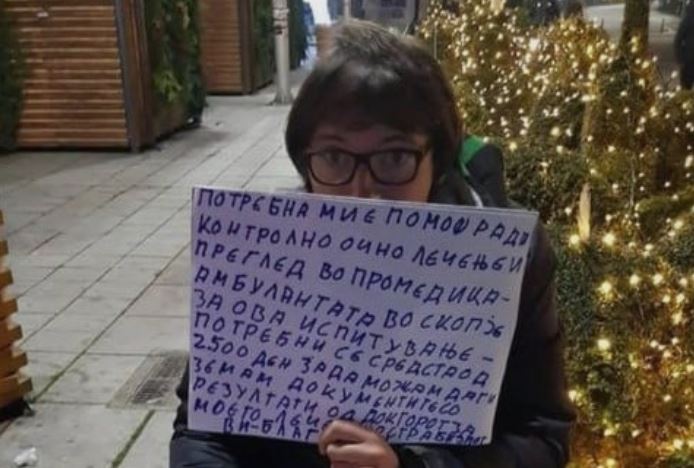 ПОТРЕБНА МИ Е ПОМОШ РАДИ
КОНТРОЛНО ОЧНО ЛЕЧЕЊЕ И
ПРЕГЛЕД ВО ПРОМЕДИКА-
АМБУЛАНТАТА ВО СКОПЈЕ
ЗА ОВА ИСПИТУВАЊЕ-
ПОТРЕБНИ СЕ СРЕДСТВА ОД
2500 ДЕН ЗА ДА МОЖАМ ДА ГИ
ЗЕМАМ ДОКУМЕНТИТЕ СО
РЕЗУЛТАТИ ОД ДОКТОРОТ ЗА
МОЕТО
ВИ-